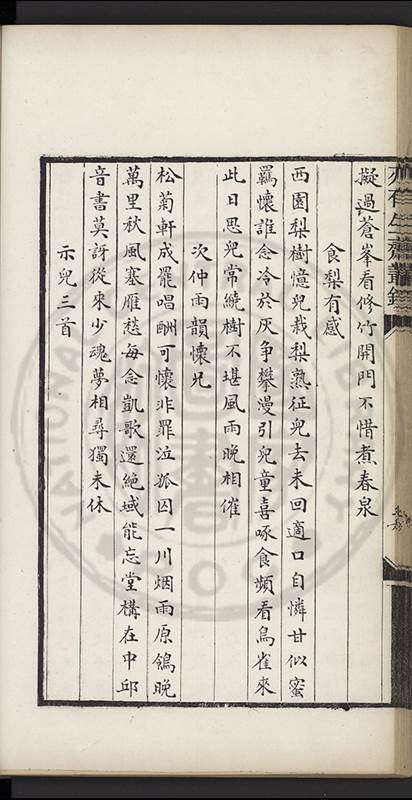 擬過蒼峯看修竹開門不惜煮春泉
食梨有感
西園梨樹憶兒栽梨熟征兒去未回適口自憐甘似蜜
羈懷誰念冷於灰争攀漫引兒童喜啄食頻看鳥雀來
此日思兒常繞樹不堪風雨晚相催
次仲雨韻懷兄
松菊軒成罷唱酬可懷非罪泣孤囚一川烟雨原鴒晚
萬里秋風塞雁愁每念凱歌還絶域能忘堂構在中邱
音書莫訝從來少魂夢相尋獨未休
示兒三首